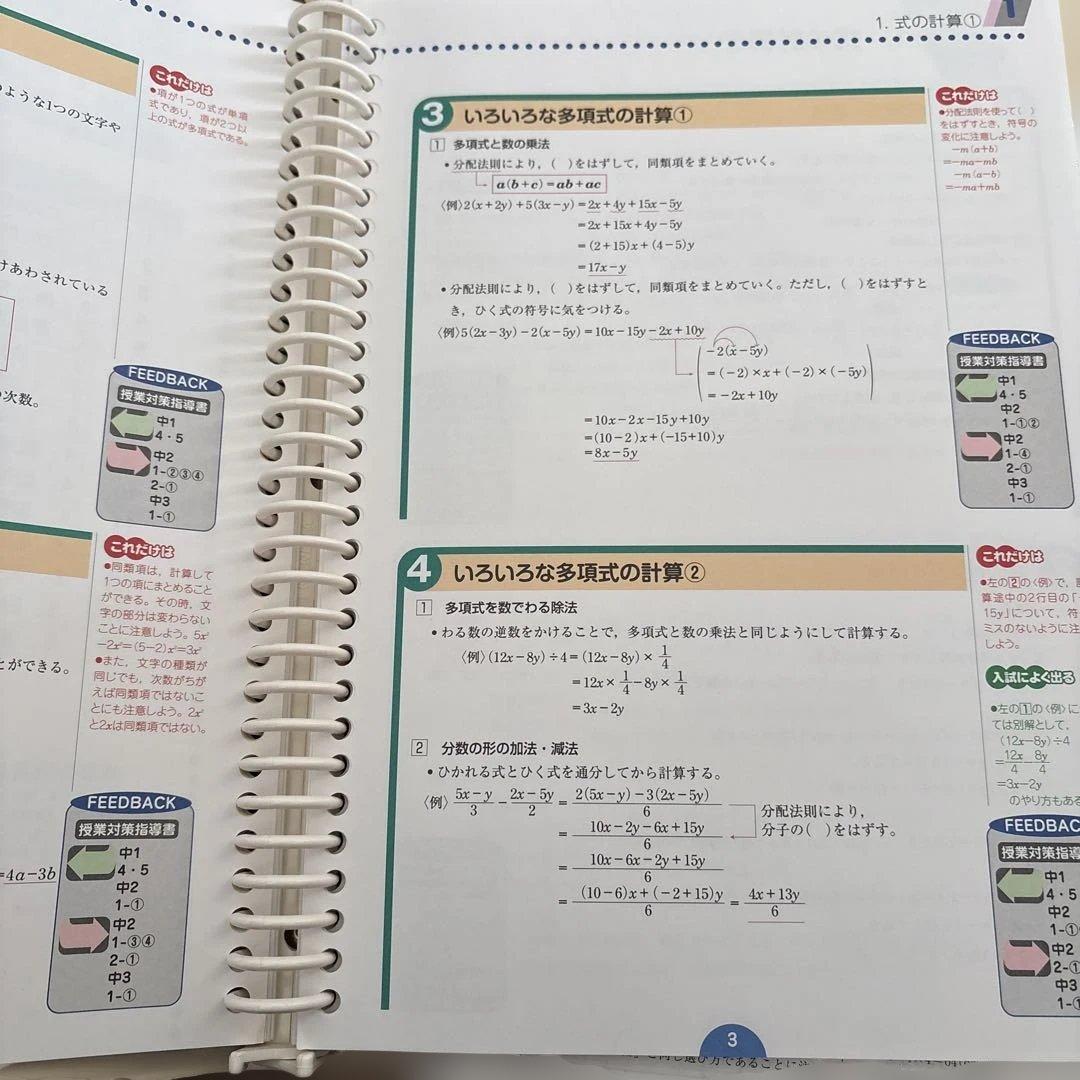 ような1つの文字や
けあわされている
次数。
とができる。
=4a−3b
これだけは
●項が1つの式が単項
式であり，項が2つ以
上の式が多項式である。
FEEDBACK
授業対策指導書
中1
4・5
中2
1-②③④
2-①
中3
1-①
これだけは
●同類項は，計算して
1つの項にまとめること
ができる。その時，文
字の部分は変わらない
ことに注意しよう。5x²
−2x²=(5−2)x²=3x²
●また，文字の種類が
同じでも，次数がちが
えば同類項ではないこ
とにも注意しよう。2x²
と2xは同類項ではない。
FEEDBACK
授業対策指導書
中1
4・5
中2
1-①
中2
1-③④
2-①
中3
1-①
1. 式の計算①
1
3 いろいろな多項式の計算①
1 多項式と数の乗法
•分配法則により，( )をはずして，同類項をまとめていく。
a(b+c)=ab+ac
〈例〉2(x+2y)+5(3x−y)=2x+4y+15x−5y
=2x+15x+4y−5y
=(2+15)x+(4−5)y
=17x−y
•分配法則により，( )をはずして，同類項をまとめていく。ただし，( )をはずすと
き，ひく式の符号に気をつける。
〈例〉5(2x−3y)−2(x−5y)=10x−15y−2x+10y
−2(x−5y)
=(−2)×x+(−2)×(−5y)
=−2x+10y
=10x−2x−15y+10y
=(10−2)x+(−15+10)y
=8x−5y
これだけは
●分配法則を使って( )
をはずすとき，符号の
変化に注意しよう。
−m(a+b)
=−ma−mb
−m(a−b)
=−ma+mb
FEEDBACK
授業対策指導書
中1
4・5
中2
1-①②
中2
1-④
2-①
中3
1-①
4 いろいろな多項式の計算②
1 多項式を数でわる除法
•わる数の逆数をかけることで，多項式と数の乗法と同じようにして計算する。
〈例〉(12x−8y)÷4=(12x−8y)×1/4
=12x×1/4−8y×1/4
=3x−2y
2 分数の形の加法・減法
•ひかれる式とひく式を通分してから計算する。
〈例〉(5x−y)/3−(2x−5y)/2=(2(5x−y)−3(2x−5y))/6
分配法則により，
分子の( )をはずす。
=(10x−2y−6x+15y)/6
=(10x−6x−2y+15y)/6
=((10−6)x+(−2+15)y)/6=(4x+13y)/6
これだけは
●左の2の〈例〉で，
算途中の2行目の「
15y」について，符
ミスのないように注
しよう。
入試によく出る
●左の1の〈例〉に
ては別解として，
(12x−8y)÷4
=12x/4−8y/4
=3x−2y
のやり方もある
FEEDBAC
授業対策指導
中1
4・5
中2
1-①
中2
2-①
中3
1-①
3